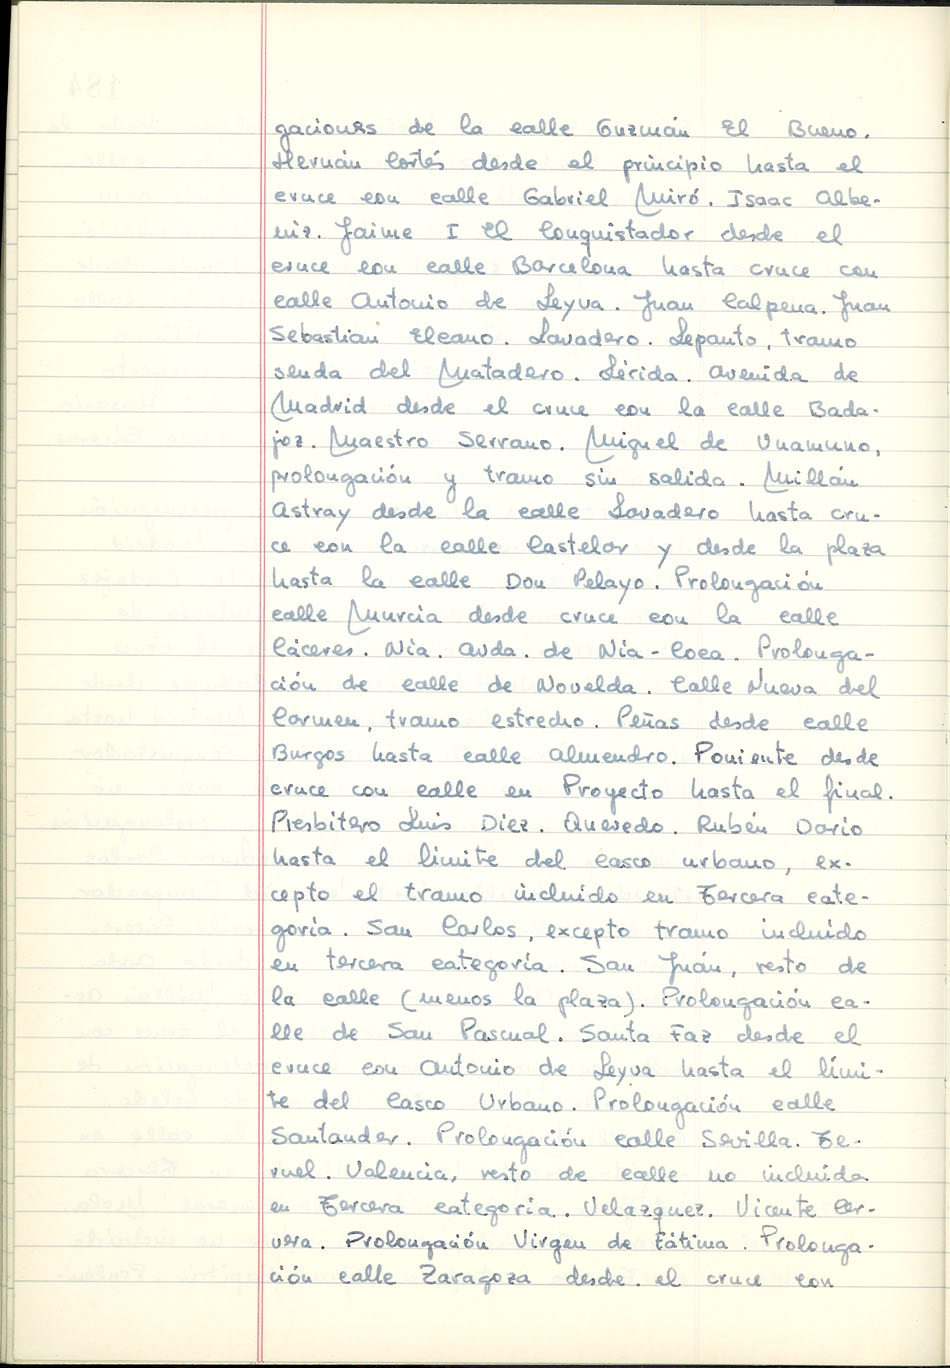 gaciones de la calle Guzmán El Bueno.
Hernán Cortés desde el principio hasta el
cruce con calle Gabriel Miró. Isaac Albe-
niz. Jaime I El Conquistador desde el
cruce con calle Barcelona hasta cruce con
calle Antonio de Leyva. Juan Calpena. Juan
Sebastian Elcano. Lavadero. Lepanto, tramo
senda del Matadero. Lérida. Avenida de
Madrid desde el cruce con la calle Bada-
joz. Maestro Serrano. Miguel de Unamuno,
prolongación y tramo sin salida. Millán
Astray desde la calle Lavadero hasta cru-
ce con la calle Castelar y desde la plaza
hasta la calle Don Pelayo. Prolongación
calle Murcia desde cruce con la calle
Cáceres. Nía. Avda. de Nía-Coca. Prolonga-
ción de calle de Novelda. Calle Nueva del
Carmen, tramo estrecho. Peñas desde calle
Burgos hasta calle Almendro. Poniente desde
cruce con calle en Proyecto hasta el final.
Presbitero Luis Díez. Quevedo. Rubén Dario
hasta el límite del casco urbano, ex-
cepto el tramo incluido en Tercera cate-
goría. San Carlos, excepto tramo incluido
en tercera categoría. San Juán, resto de
la calle (menos la plaza). Prolongación ca-
lle de San Pascual. Santa Faz desde el
cruce con Antonio de Leyva hasta el lími-
te del Casco Urbano. Prolongación calle
Santander. Prolongación calle Sevilla. Te-
ruel. Valencia, resto de calle no incluida
en Tercera categoría. Velazquez. Vicente Cer-
vera. Prolongación Virgen de Fátima. Prolonga-
ción calle Zaragoza desde el cruce con